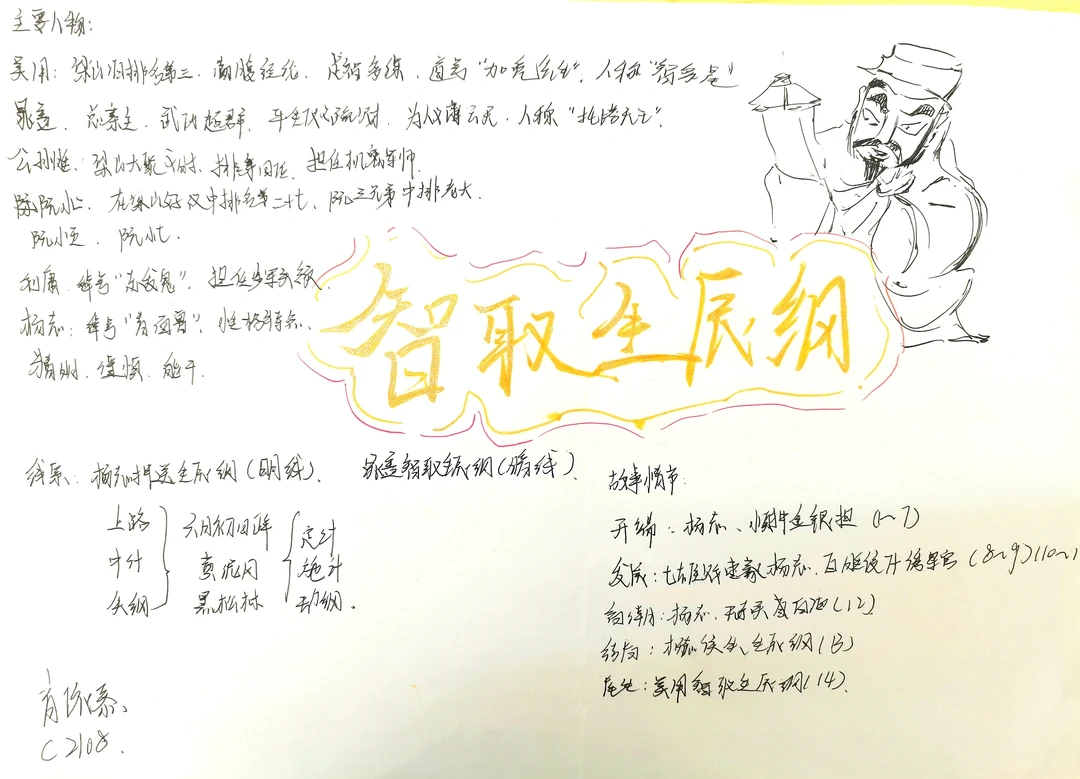 主要人物：
吴用：梁山泊排名第三，满腹经纶，足智多谋，道号"加亮先生"，人称"智多星"
晁盖，总寨主，武功超群，平生仗义疏财，为人义薄云天，人称"托塔天王"
公孙胜，梁山大聚义时，排第四位，担任机密军师
阮小二，在梁山好汉中排名第二十七，阮三兄弟中排老大．
阮小五、阮小七．
刘唐 绰号"赤发鬼"，担任步军头领
杨志：绰号"青面兽"，性格特点、
精明、谨慎、能干．
智取生辰纲
线索：杨志押送生辰纲（明线） 晁盖智取生辰纲（暗线）．
上路 六月初四 定计
中计 黄泥冈 施计
失纲 黑松林 劫纲．
故事情节
开端：杨志、押金银担（1~7）
发展：七雄 杨志，白胜设计诱军官（8~9）（10~1
高潮：杨志、（12）
结局：杨志失生辰纲（13）
尾声：吴用智取生辰纲（14）．
C2108．